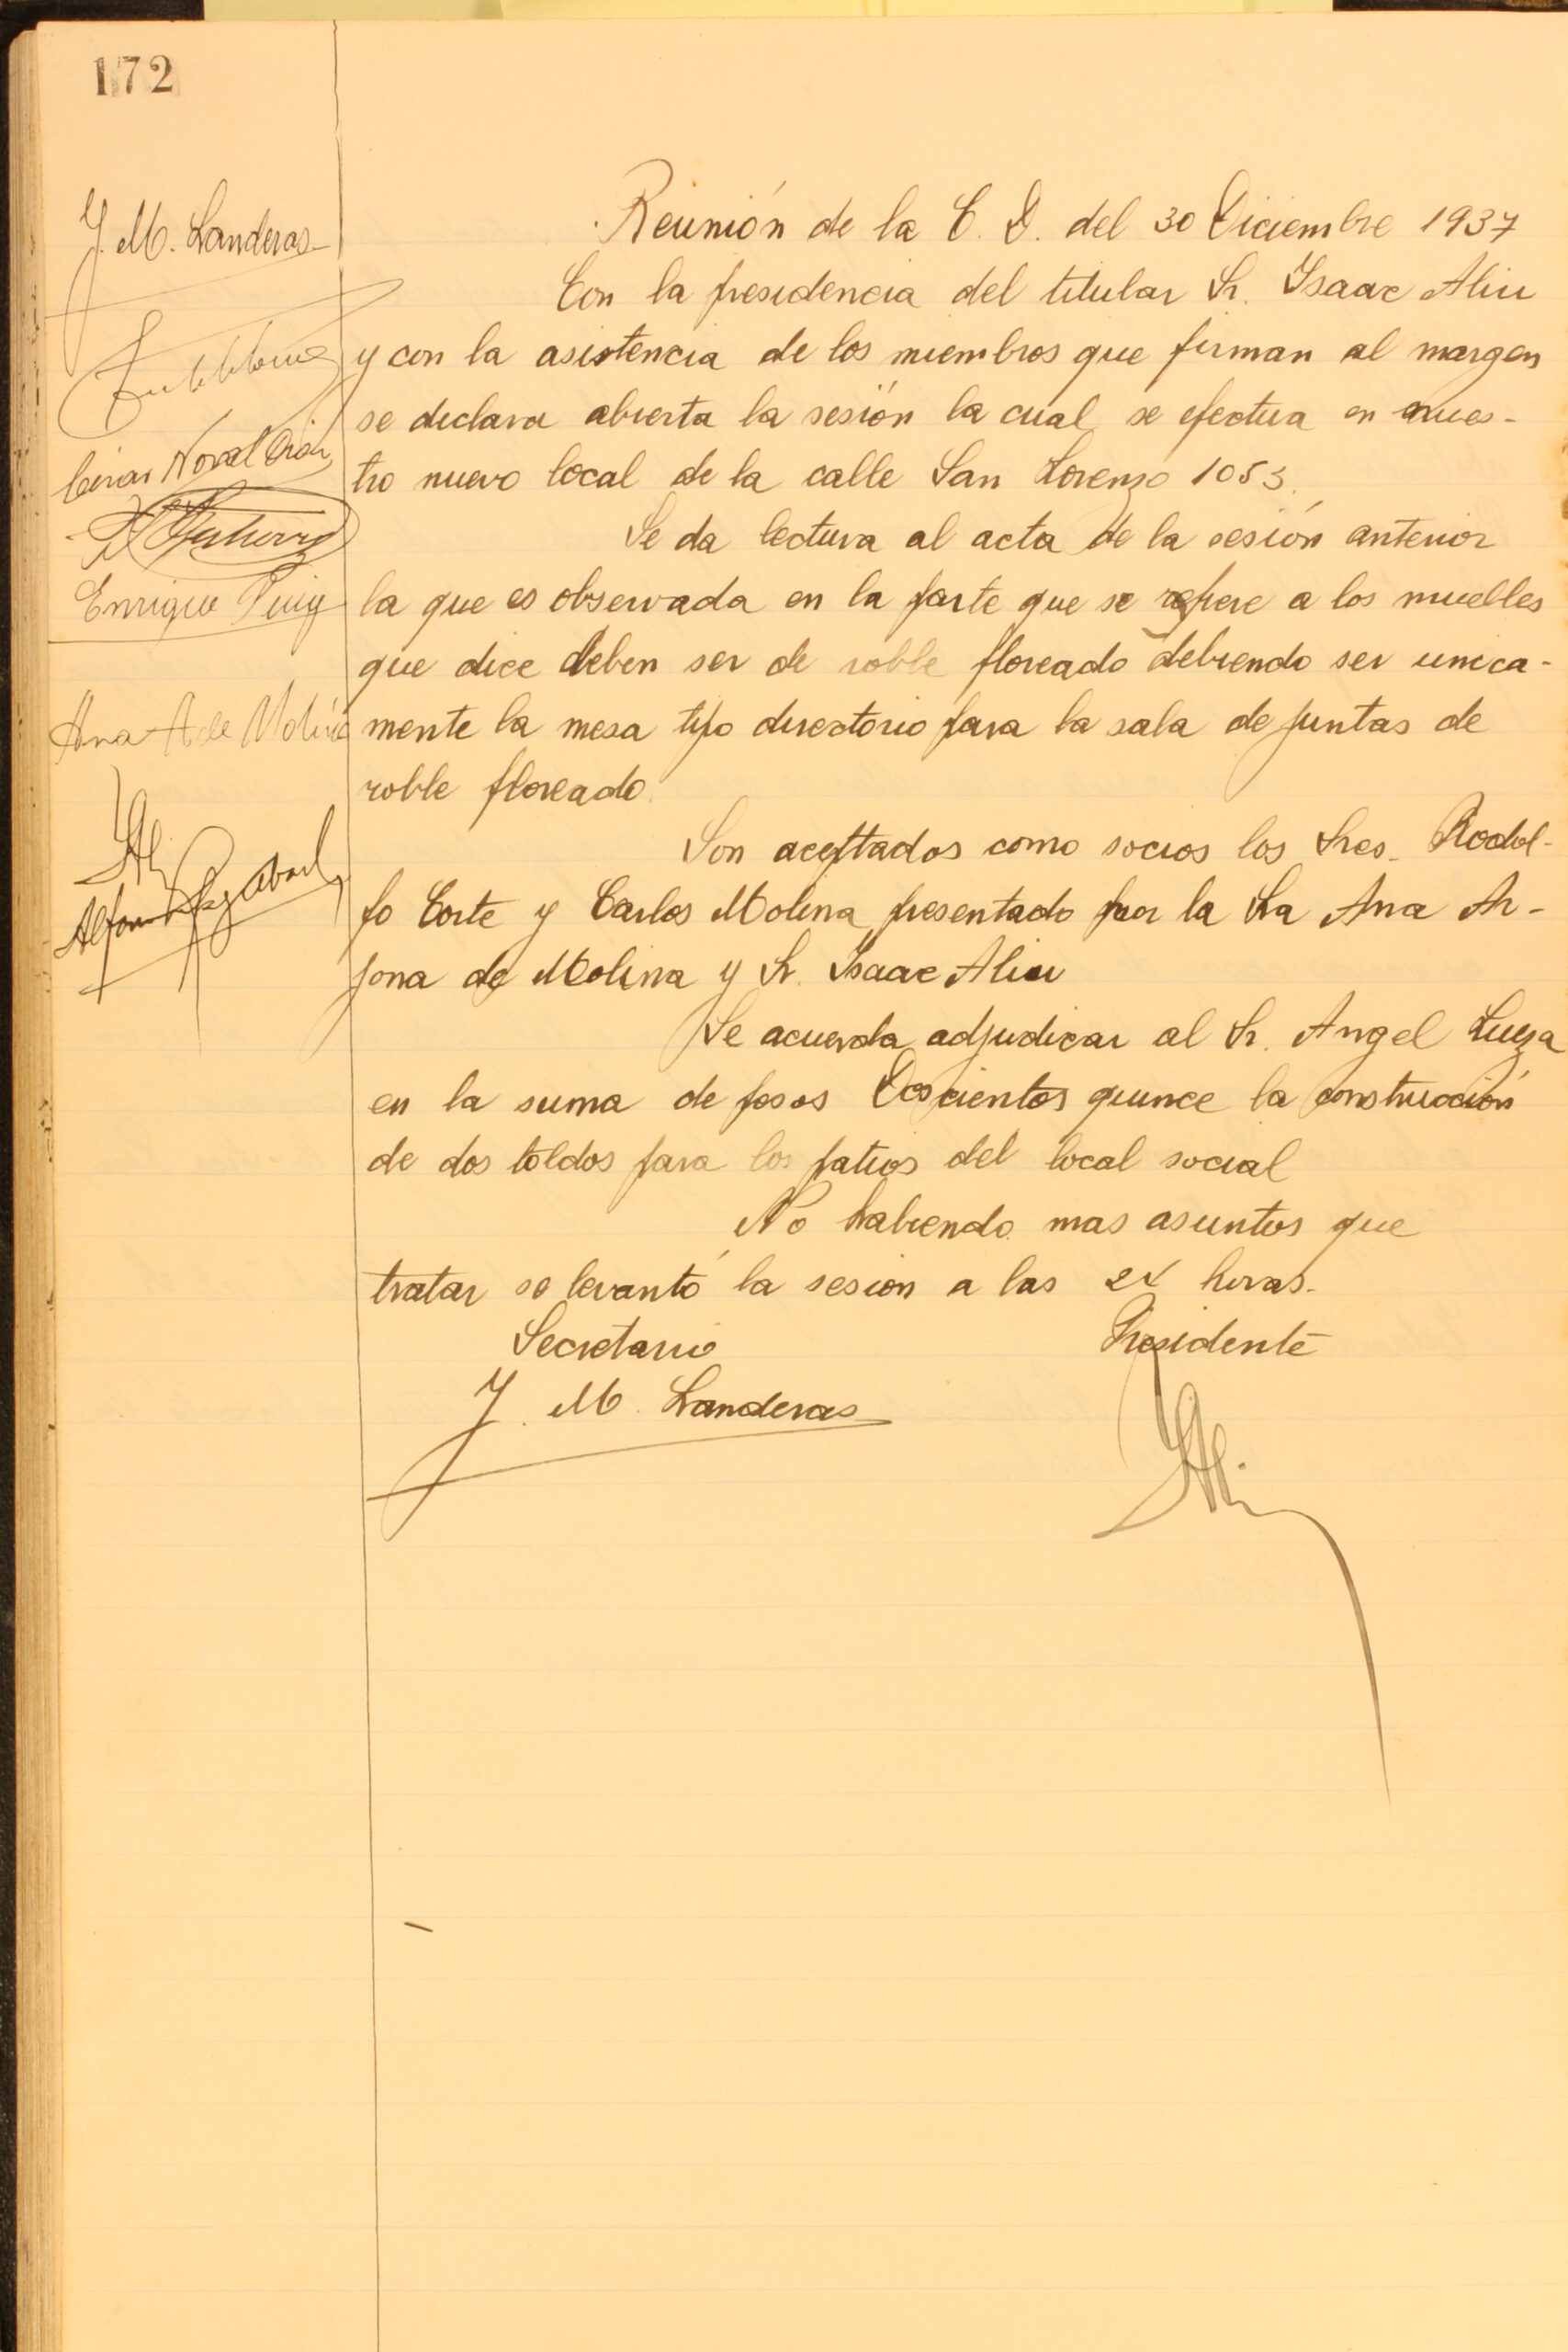 172
J. M. Landeras
Enrique Puig
Ana A de Molina
Reunión de la C. D. del 30 Diciembre 1937
Con la presidencia del titular Sr. Ysaac Aliu
y con la asistencia de los miembros que firman al margen
se declara abierta la sesión la cual se efectua en nues-
tro nuevo local de la calle San Lorenzo 1053.
Se da lectura al acta de la sesión anterior
la que es observada en la parte que se refiere a los muebles
que dice deben ser de roble floreado debiendo ser unica-
mente la mesa tipo directorio para la sala de juntas de
roble floreado.
Son aceptados como socios los Sres. Rodol-
fo Corte y Carlos Molina presentado por la Sra Ana Ar-
jona de Molina y Sr. Isaac Aliu
Se acuerda adjudicar al Sr. Angel Lueza
en la suma de pesos Doscientos quince la construcción
de dos toldos para los patios del local social
No habiendo mas asuntos que
tratar se levantó la sesion a las 24 horas.
Secretario Presidente
J. M. Landeras